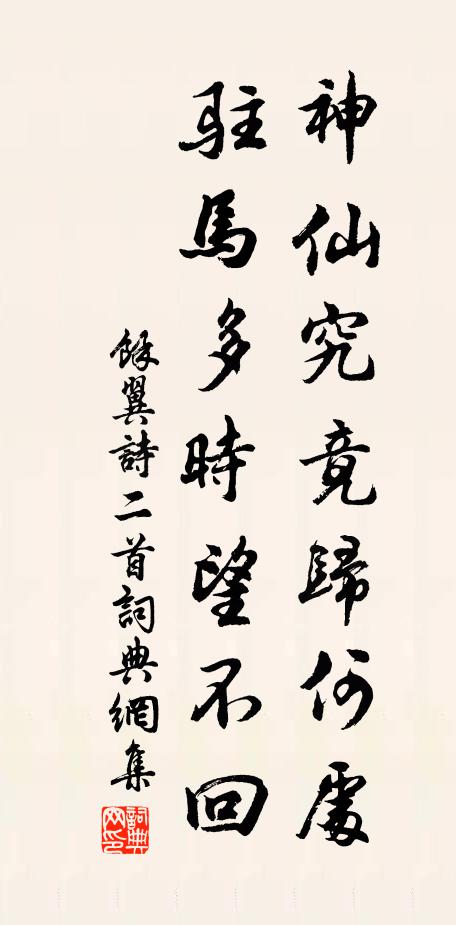 神仙究竟歸何處
駐馬多時望不回
餘翼詩二首詞典網集
詞典網印